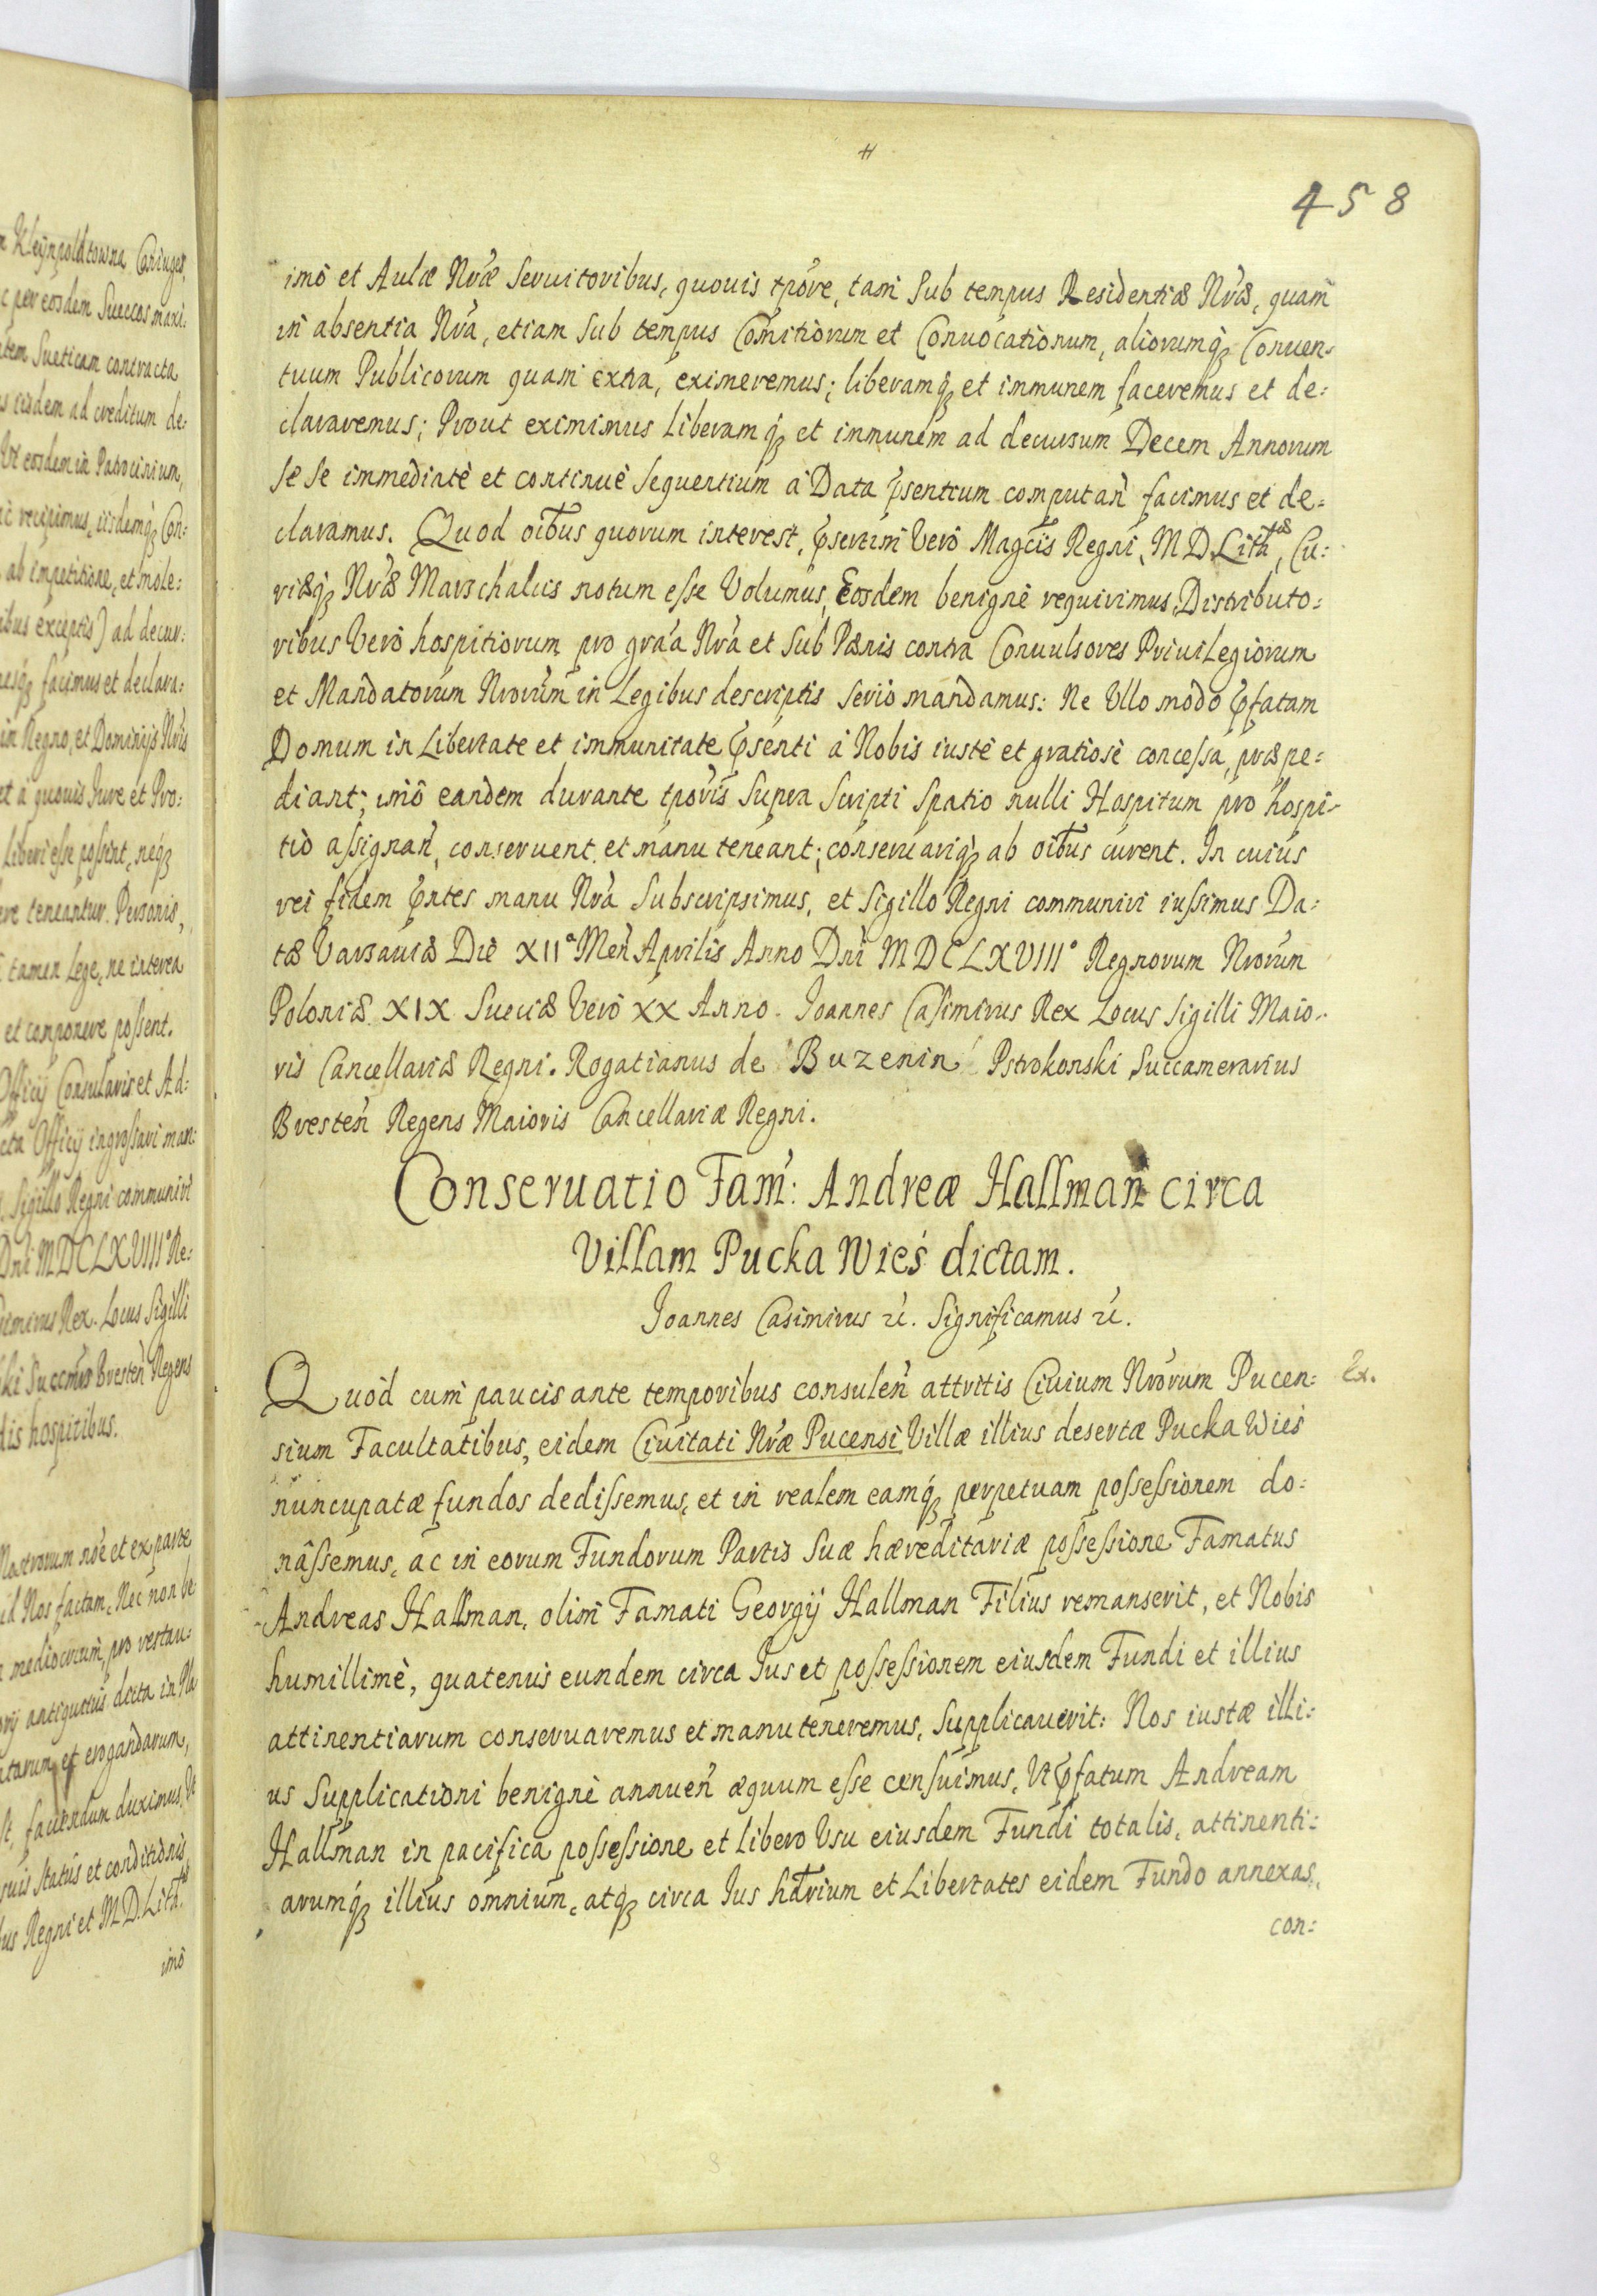 458
imò et Aulæ Nræ Seruitoribus, quouis tp̄ore, tam Sub tempus Residentiæ Nræ, quam
in absentia Nra, etiam Sub tempus Comitiorum et Conuocationum, aliorumq̨ Conuen-
tuum Publicorum quam extra, eximeremus; liberamq̨ et immunem faceremus et de:
clararemus; Prout eximimus Liberamq̨ et inmunem ad decursum Decem Annorum
Se Se immediatè et continuè Sequentium à Data p̄sentium computañ facimus et de-
claramus. Quod oībus quorum interest, p̄sertim Verò Magcis Regni, M D Litæ, Cu:
riæq̨ Nræ Marschalcis notum esse Volumus, Eosdem benignè requirimus, Distributo:
ribus Verò hospitiorum pro gra'a Nra et Sub Pænis contra Conuulsores PriuiLegiorum
et Mandatorum Nrorum in Legibus descriptis Serio mandamus: Ne Vllo modo p̄fatam
Domum in Libertate et immunitate p̄senti à Nobis iustè et gratiosè concessa, præpe:
diant; imò eandem durante tp̄oris Supra Scripti Spatio nulli Hospitum pro hospi-
tio assignañ, conseruent et manu teneant; conseruariq̨ ab oībus curent. In cuius
rei fidem p̄ntes manu Nra Subscripsimus, et Sigillo Regni communiri iussimus Da:
tæ Varsauiæ Die XIIa Meñ Aprilis Anno Dni M D C L X V I I I° Regnorum Nrorum
Poloniæ XIX Sueciæ Verò XX Anno. Joannes Casimirus Rex Locus Sigilli Maio-
ris Cancellariæ Regni. Rogatianus de Buzenin Pstrokonski Succamerarius
Bresteñ Regens Maioris Cancellariæ Regni.
Conseruatio Fam: Andreæ Hallman circa
Villam Pucka Wieś dictam.
Joannes Casimirus etc. Significamus etc.
Quod cum paucis ante temporibus consuleñ attritis Ciuium Nrorum Pucen: Ex.
sium Facultatibus, eidem Ciuitati Nræ Pucensi Villæ illius desertæ Pucka Wieś
nuncupatæ fundos dedissemus, et in realem eamq̨ perpetuam possessionem do:
nâssemus, ac in eorum Fundorum Partis Suæ hæreditariæ possessione Famatus
Andreas Hallman, olim Famati Georgij Hallman Filius remanserit, et Nobis
humillimè, quatenus eundem circa Jus et possessionem eiusdem Fundi et illius
attinentiarum conseruaremus et manuteneremus, Supplicauerit: Nos iustæ illi:
us Supplicationi benignè annueñ æquum esse censuimus, Vt p̄fatum Andream
Hallman in pacifica possessione et Libero Vsu eiusdem Fundi totalis, attinenti:
arumq̨ illius omnium, atq̨ circa Jus hærium et Libertates eidem Fundo annexas,
con: